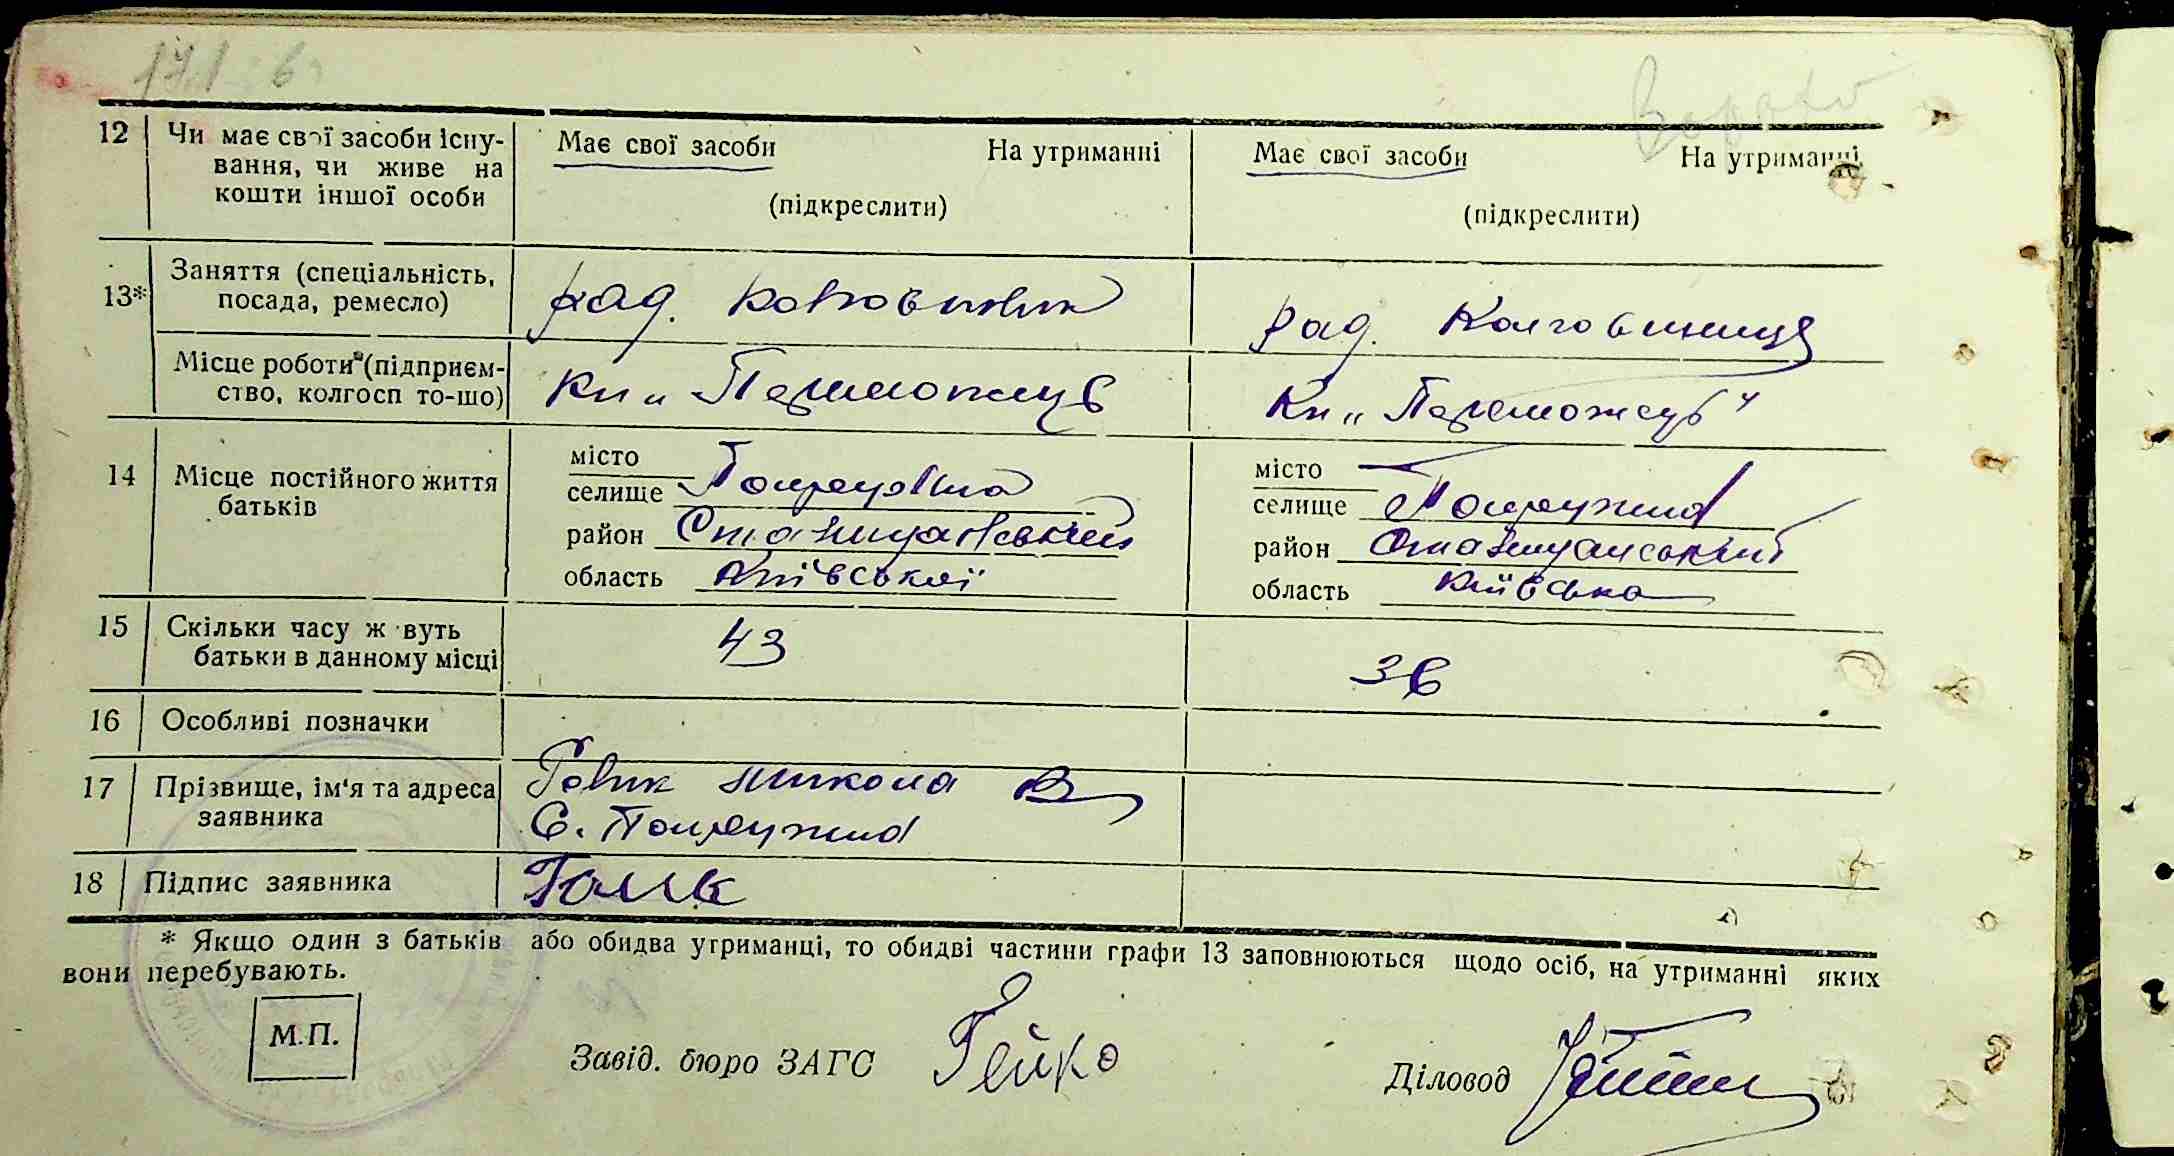 12 Чи має свої засоби існу-
вання, чи живе на
кошти іншої особи
Має свої засоби На утриманні
(підкреслити)
Має свої засоби На утриманні
(підкреслити)
13* Заняття (спеціальність,
посада, ремесло)
рад. колгоспник
рад. колгоспниця
Місце роботи (підприєм-
ство, колгосп то-що)
Кп „ Переможець
Кп „ Переможець"
14 Місце постійного життя
батьків
місто
селище Потреужна
район
область Київської
місто
селище
район
область Київська
15 Скільки часу ж вуть
батьки в данному місці
43
36
16 Особливі позначки
17 Прізвище, ім'я та адреса
заявника
Голик Микола В
С.
18 Підпис заявника
Голик
* Якщо один з батьків або обидва утриманці, то обидві частини графи 13 заповнюються щодо осіб, на утриманні яких
вони перебувають.
М.П.
Завід. бюро ЗАГС Гейко
Діловод